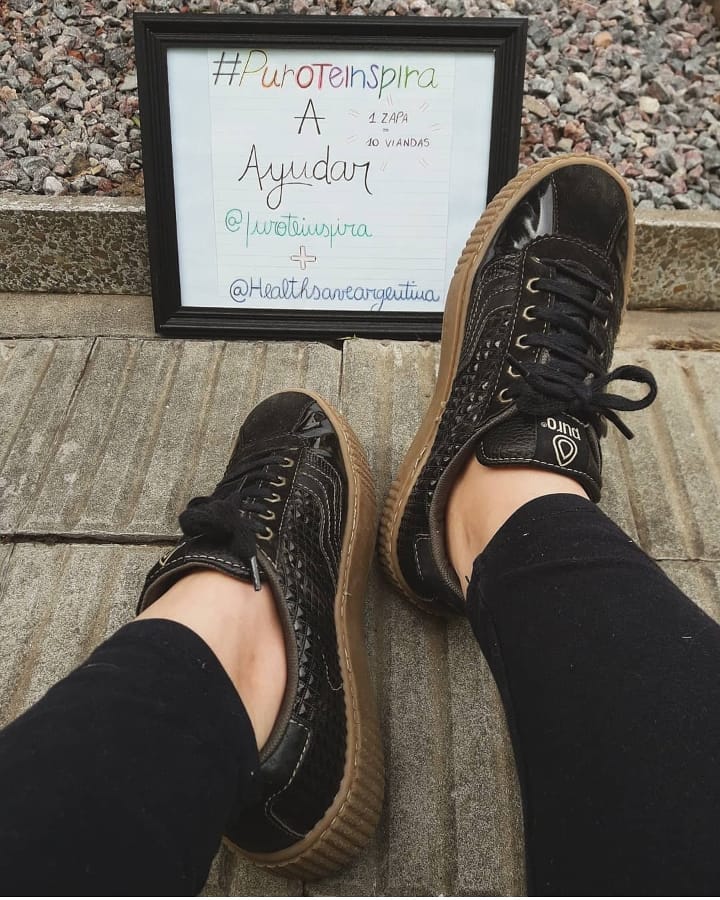 #PuroTeinspira
A
1 ZAPA
=
10 VIANDAS
Ayudar
@puroteinspira
+
@Healthsaveargentina
puro®